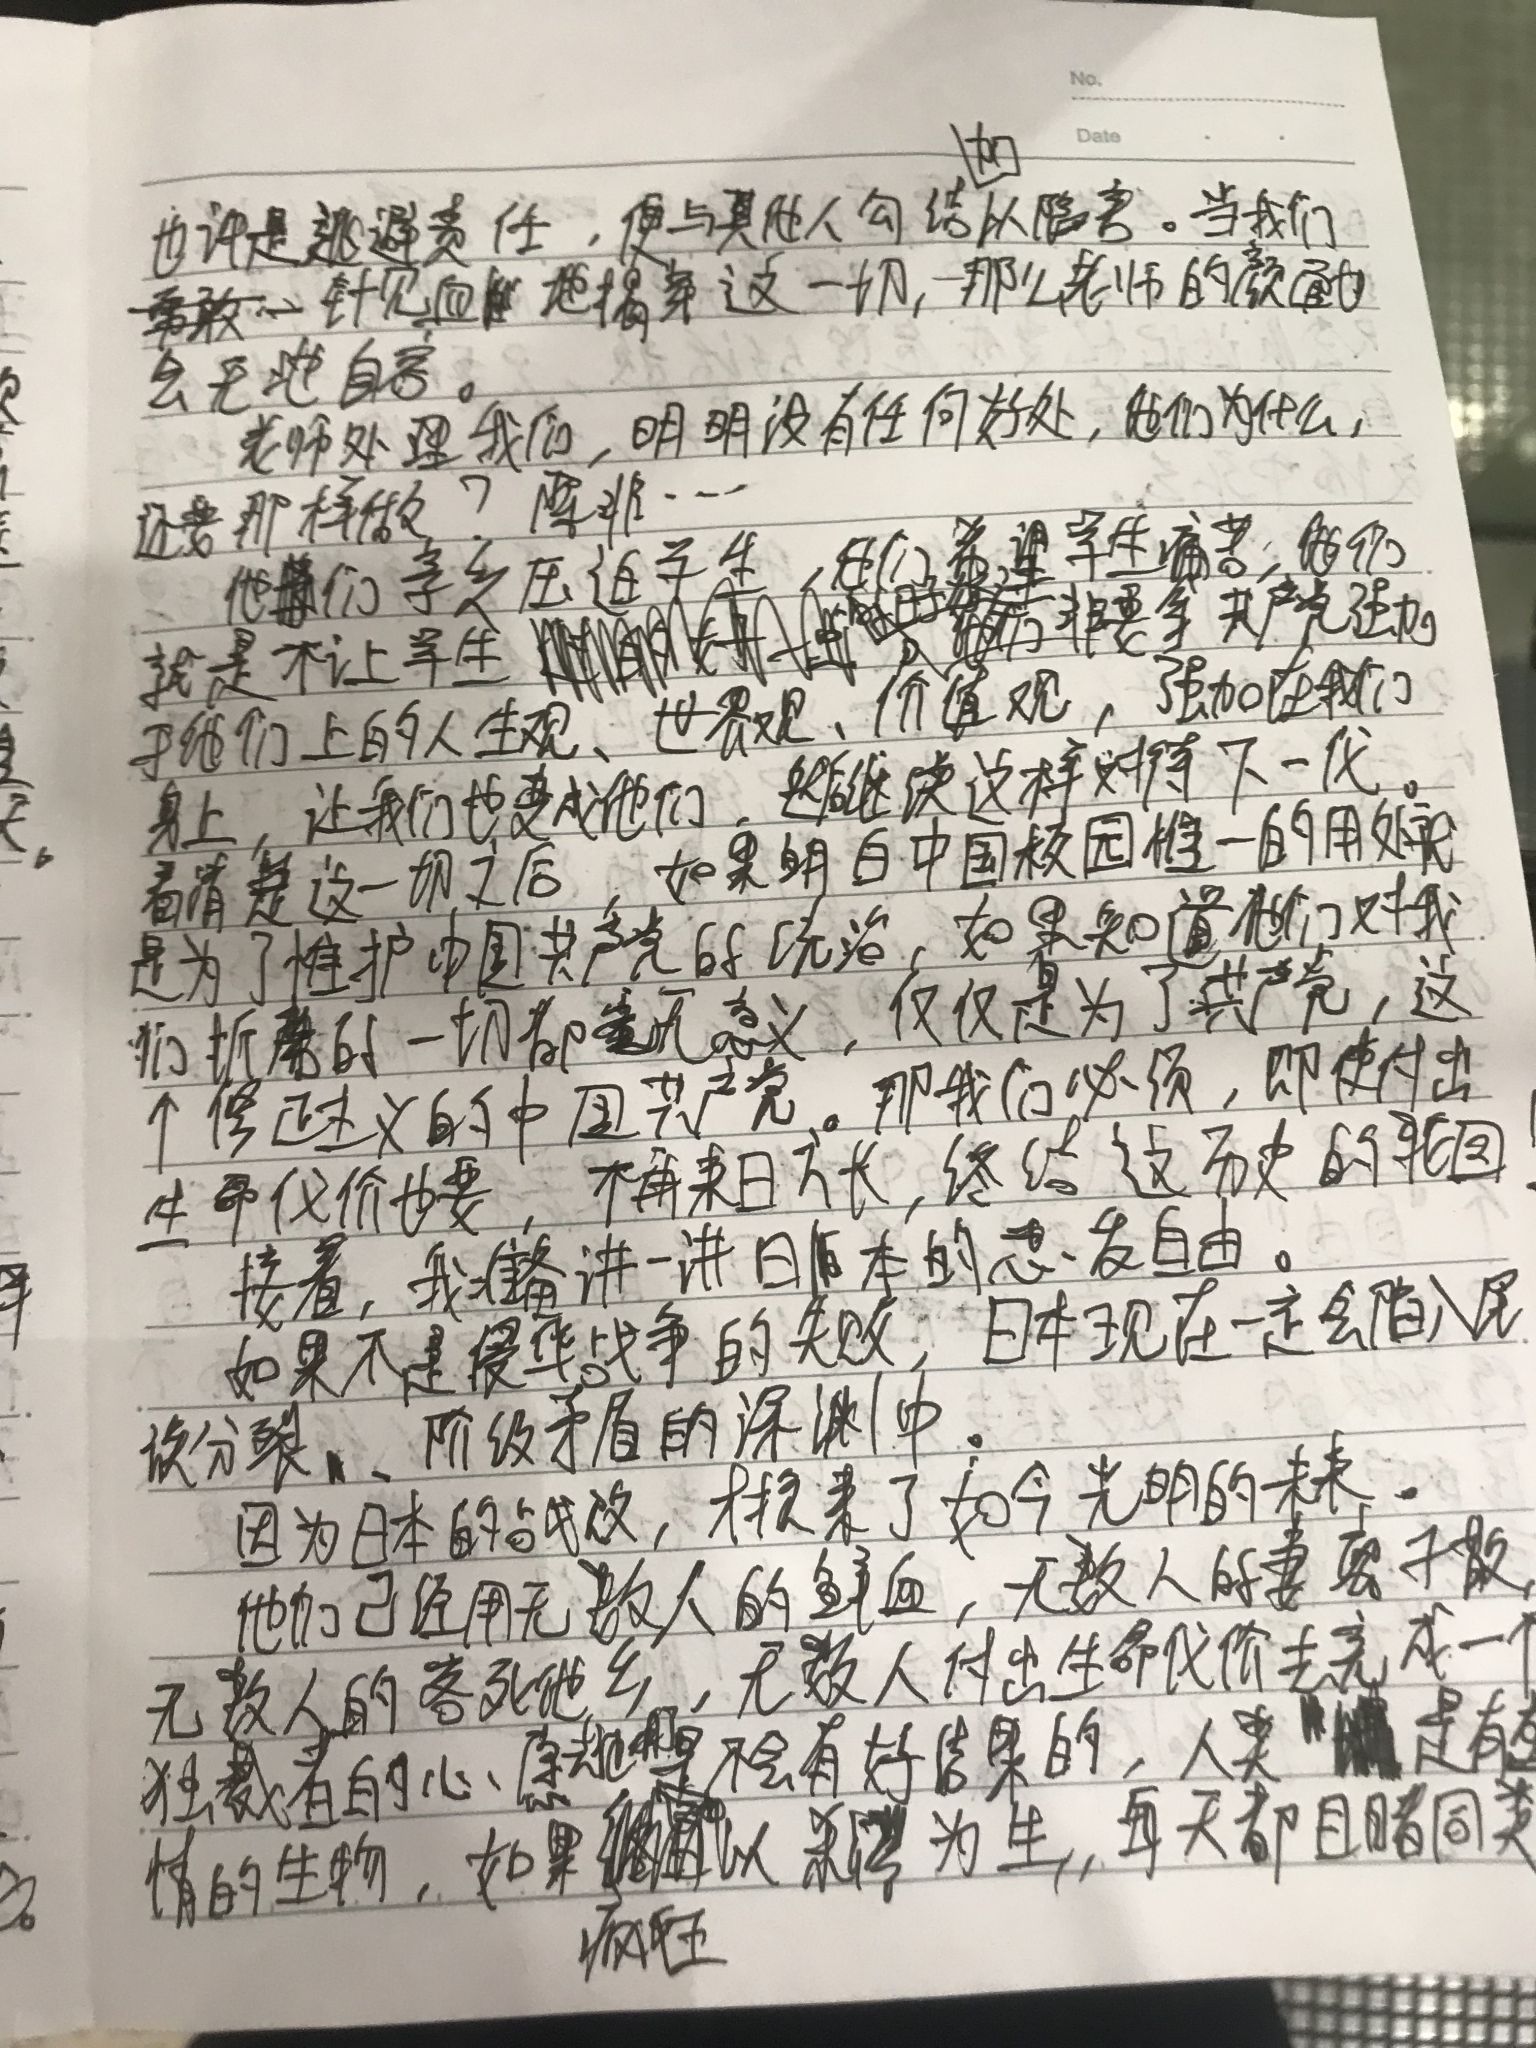 No.
Date
加
也许是逃避责任，便与其他人勾结以陷害。当我们
勇敢一针见血地揭穿这一切，那么老师的颜面也
会无地自容。
老师处理我们，明明没有任何好处，他们为什么，
还要那样做？除非…
他们字乡压迫学生，他们希望学生痛苦，他们
就是不让学生 非要争共产党强加
于他们上的人生观、世界观、价值观，强加在我们
身上，让我们也变成他们，继续这样对待下一代。
看清楚这一切之后，如果明白中国校园惟一的用处就
是为了惟护中国共产党的统治，如果知道他们对我
们折磨的一切都毫无意义，仅仅是为了共产党，这
个修正主义的中国共产党。那我们必须，即使付出
生命代价也要，不再来日方长，终结这历史的轮回！
接着，我准备讲一讲日本的思发自由。
如果不是侵华战争的失败，日本现在一定会陷入民
族分裂、阶级矛盾的深渊中。
因为日本的战败，才换来了如今光明的未来.
他们已经用无数人的鲜血，无数人的妻离子散，
无数人的客死他乡，无数人付出生命代价去完成一个
独裁者的心愿 是不会有好结果的，人类 是有感
情的生物，如果 以杀 为生，每天都目睹同类
疯狂